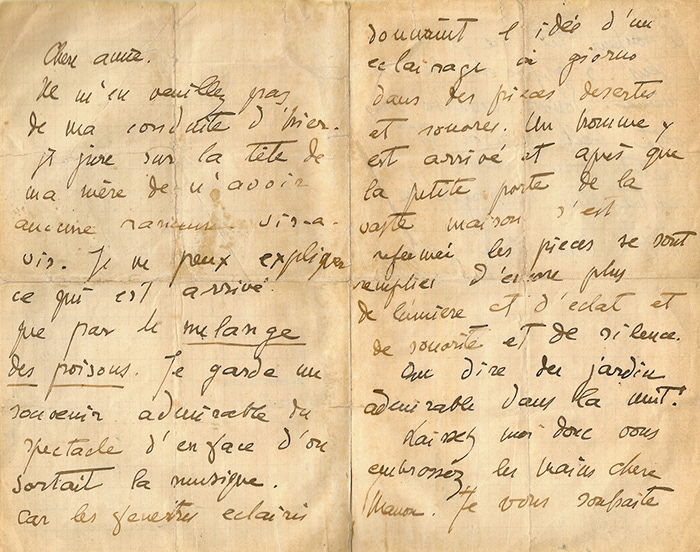 Chere amie.
Ne m'en veuillez pas
de ma conduite d'hier.
je jure sur la tête de
ma mère de n'avoir
aucune rancune vis-a-
vis. Je ne peux expliquer
ce qui est arrivé.
que par le melange
des poisons. Je garde un
souvenir admirable du
spectacle d'en face d'ou
sortait la musique.
Car les fenetres eclairés
donnaient l'idée d'un
eclairage a giorno
dans des pieces desertes
et sonores. Un homme y
est arrivé et après que
la petite porte de la
vaste maison s'est
refermée les pieces se sont
remplies d'encore plus
de lumière et d'eclat et
de sonorité et de silence.
Que dire du jardin
admirable dans la nuit!
Laissez moi donc vous
embrassez les mains chere
Manon. Je vous souhaite